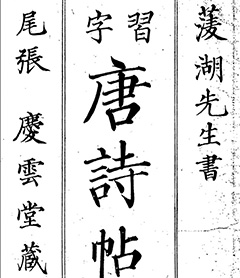 菱湖先生書
習字
唐詩帖
尾張 慶雲堂藏